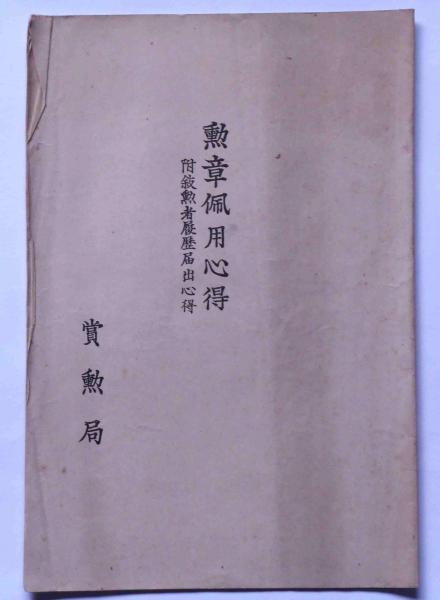 勲章佩用心得
附敍勲者履歴届出心得
賞勲局